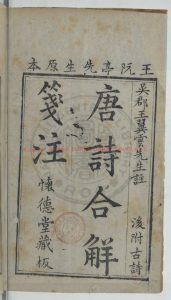 王阮亭先生原本
吳郡王翼雲先生註
唐詩合解
後附古詩
箋注
懷德堂藏板